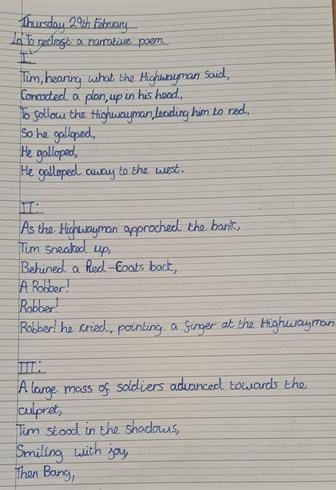 Thursday 29th February
LI: To redraft a narrative poem.
I:
Tim, hearing what the Highwayman said,
Concocted a plan, up in his head,
To follow the Highwayman, leading him to red,
So he galloped,
He galloped,
He galloped away to the west.
II:
As the Highwayman approched the bank,
Tim sneaked up,
Behined a Red-Coats back,
A Robber!
Robber!
Robber! he cried, pointing a finger at the Highwayman
III:
A large mass of soldiers advanced towards the
culpret,
Tim stood in the shadows,
Smiling with joy,
Then Bang,